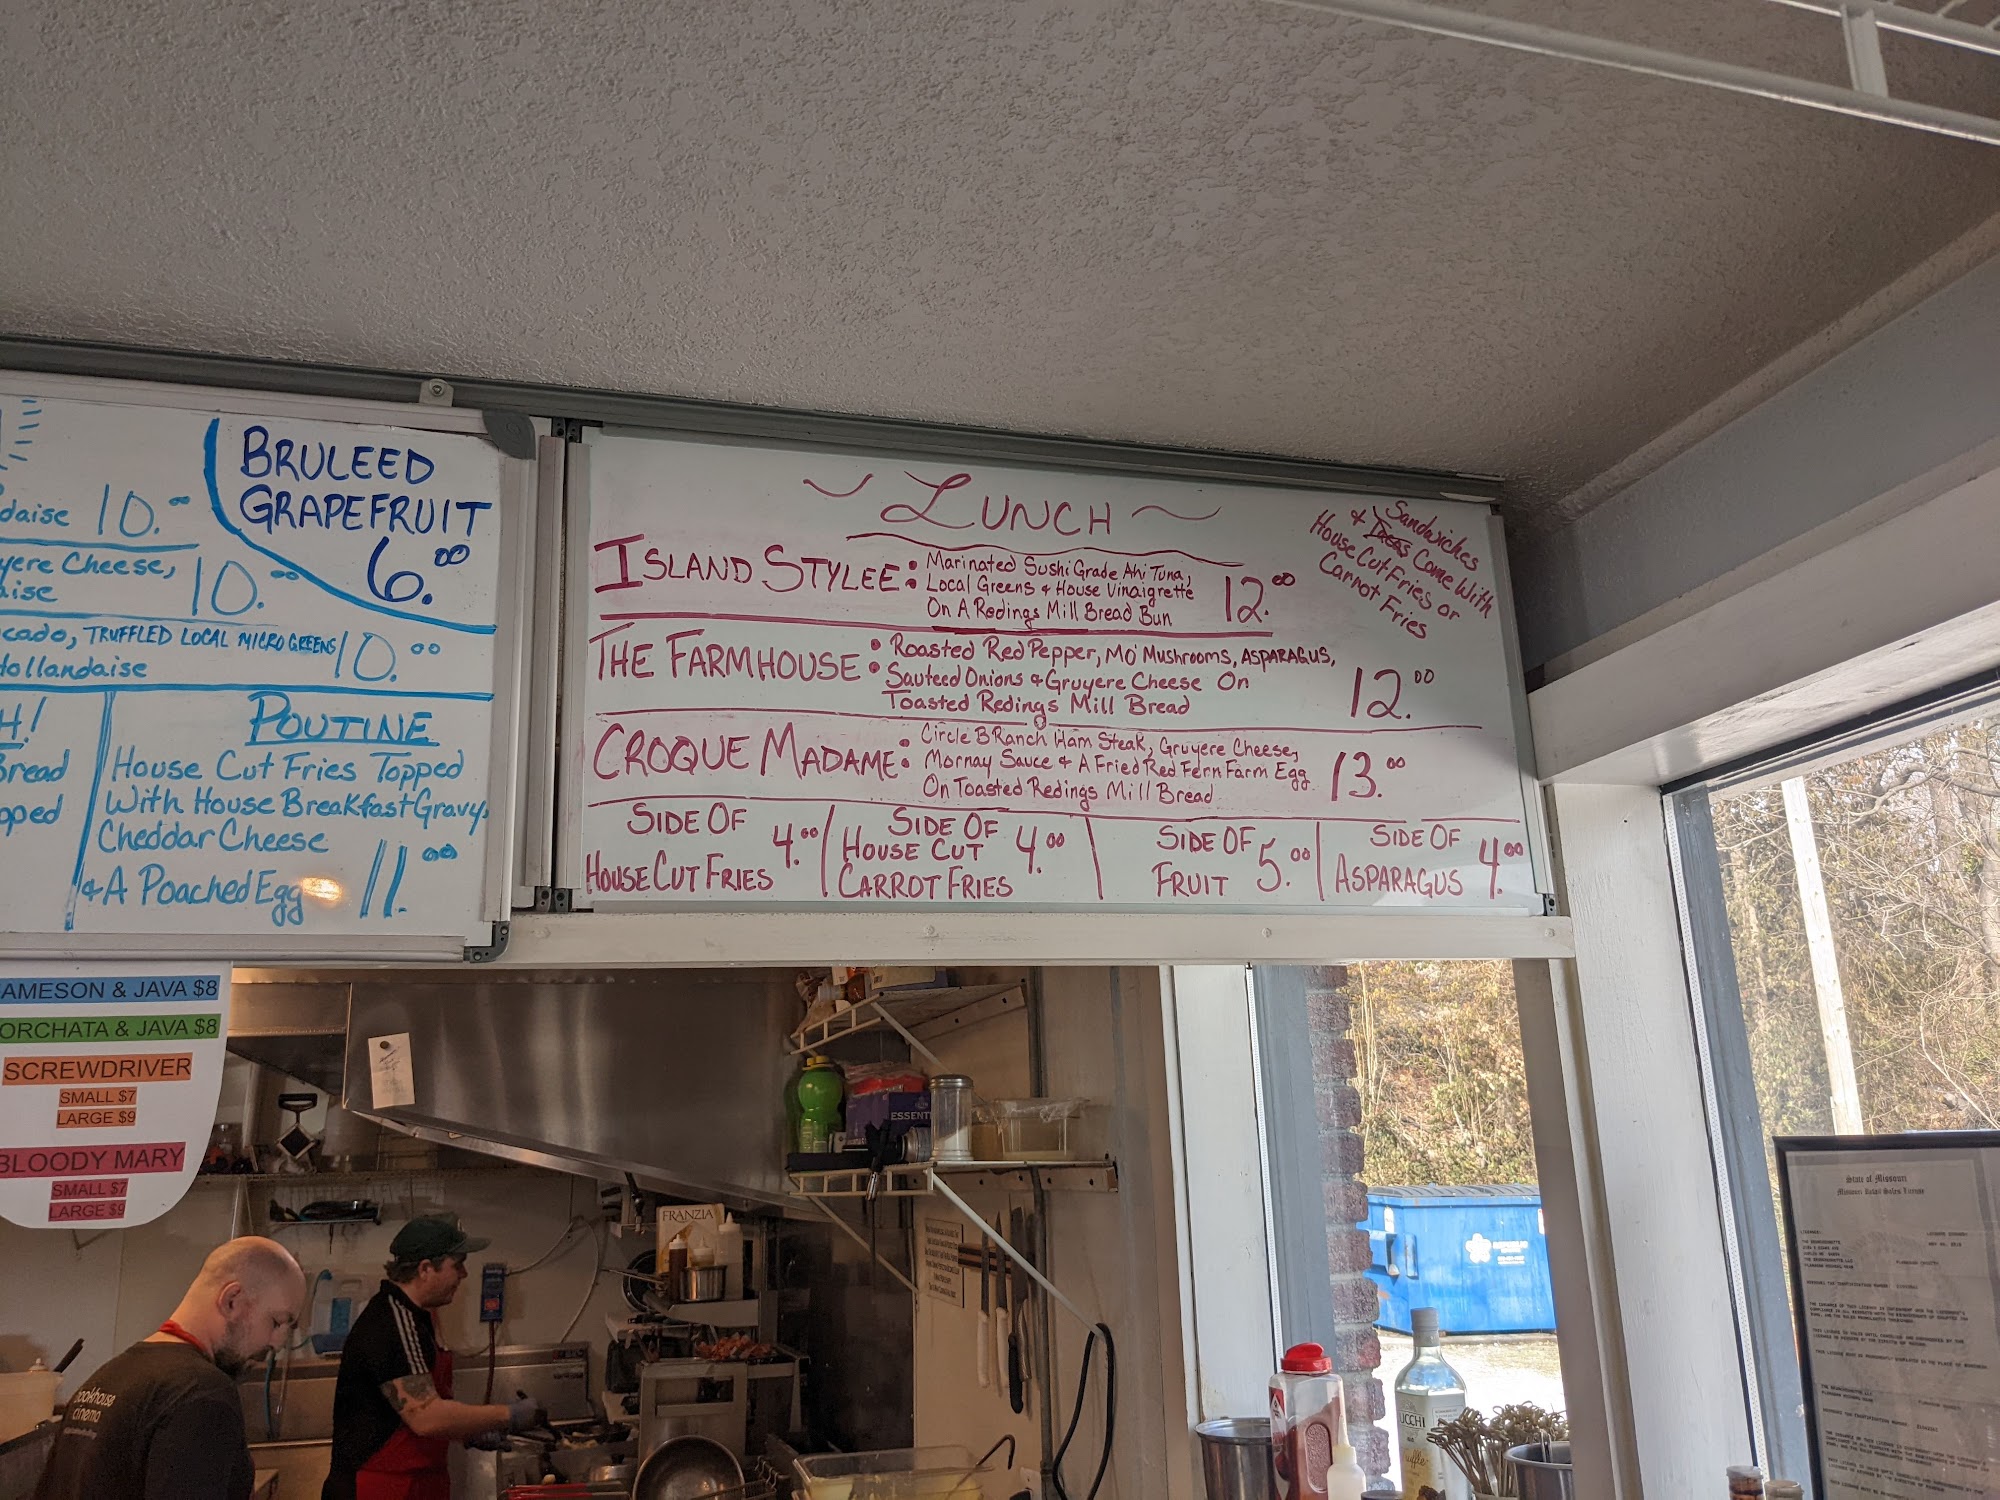 BRULEED
GRAPEFRUIT
6.00
daise 10.00
yere Cheese,
aise 10.00
cado, TRUFFLED LOCAL MICRO GREENS
Hollandaise 10.00
H!
Bread
pped
POUTINE
House Cut Fries Topped
With House Breakfast Gravy,
Cheddar Cheese
& A Poached Egg 11.00
~ LUNCH ~
Sandwiches
& Tacos Come With
House Cut Fries or
Carrot Fries
ISLAND STYLEE: Marinated Sushi Grade Ahi Tuna,
Local Greens & House Vinaigrette
On A Redings Mill Bread Bun
12.00
THE FARMHOUSE: Roasted Red Pepper, Mo' Mushrooms, ASPARAGUS,
Sauteed Onions & Gruyere Cheese On
Toasted Redings Mill Bread
12.00
CROQUE MADAME: Circle B Ranch Ham Steak, Gruyere Cheese,
Mornay Sauce & A Fried Red Fern Farm Egg
On Toasted Redings Mill Bread
13.00
SIDE OF
HOUSE CUT FRIES 4.00
SIDE OF
HOUSE CUT
CARROT FRIES 4.00
SIDE OF
FRUIT 5.00
SIDE OF
ASPARAGUS 4.00
JAMESON & JAVA $8
ORCHATA & JAVA $8
SCREWDRIVER
SMALL $7
LARGE $9
BLOODY MARY
SMALL $7
LARGE $9
ESSENTI
FRANZIA
ookhouse
cinema
UCCHI
State of Missouri
Missouri Retail Sales License